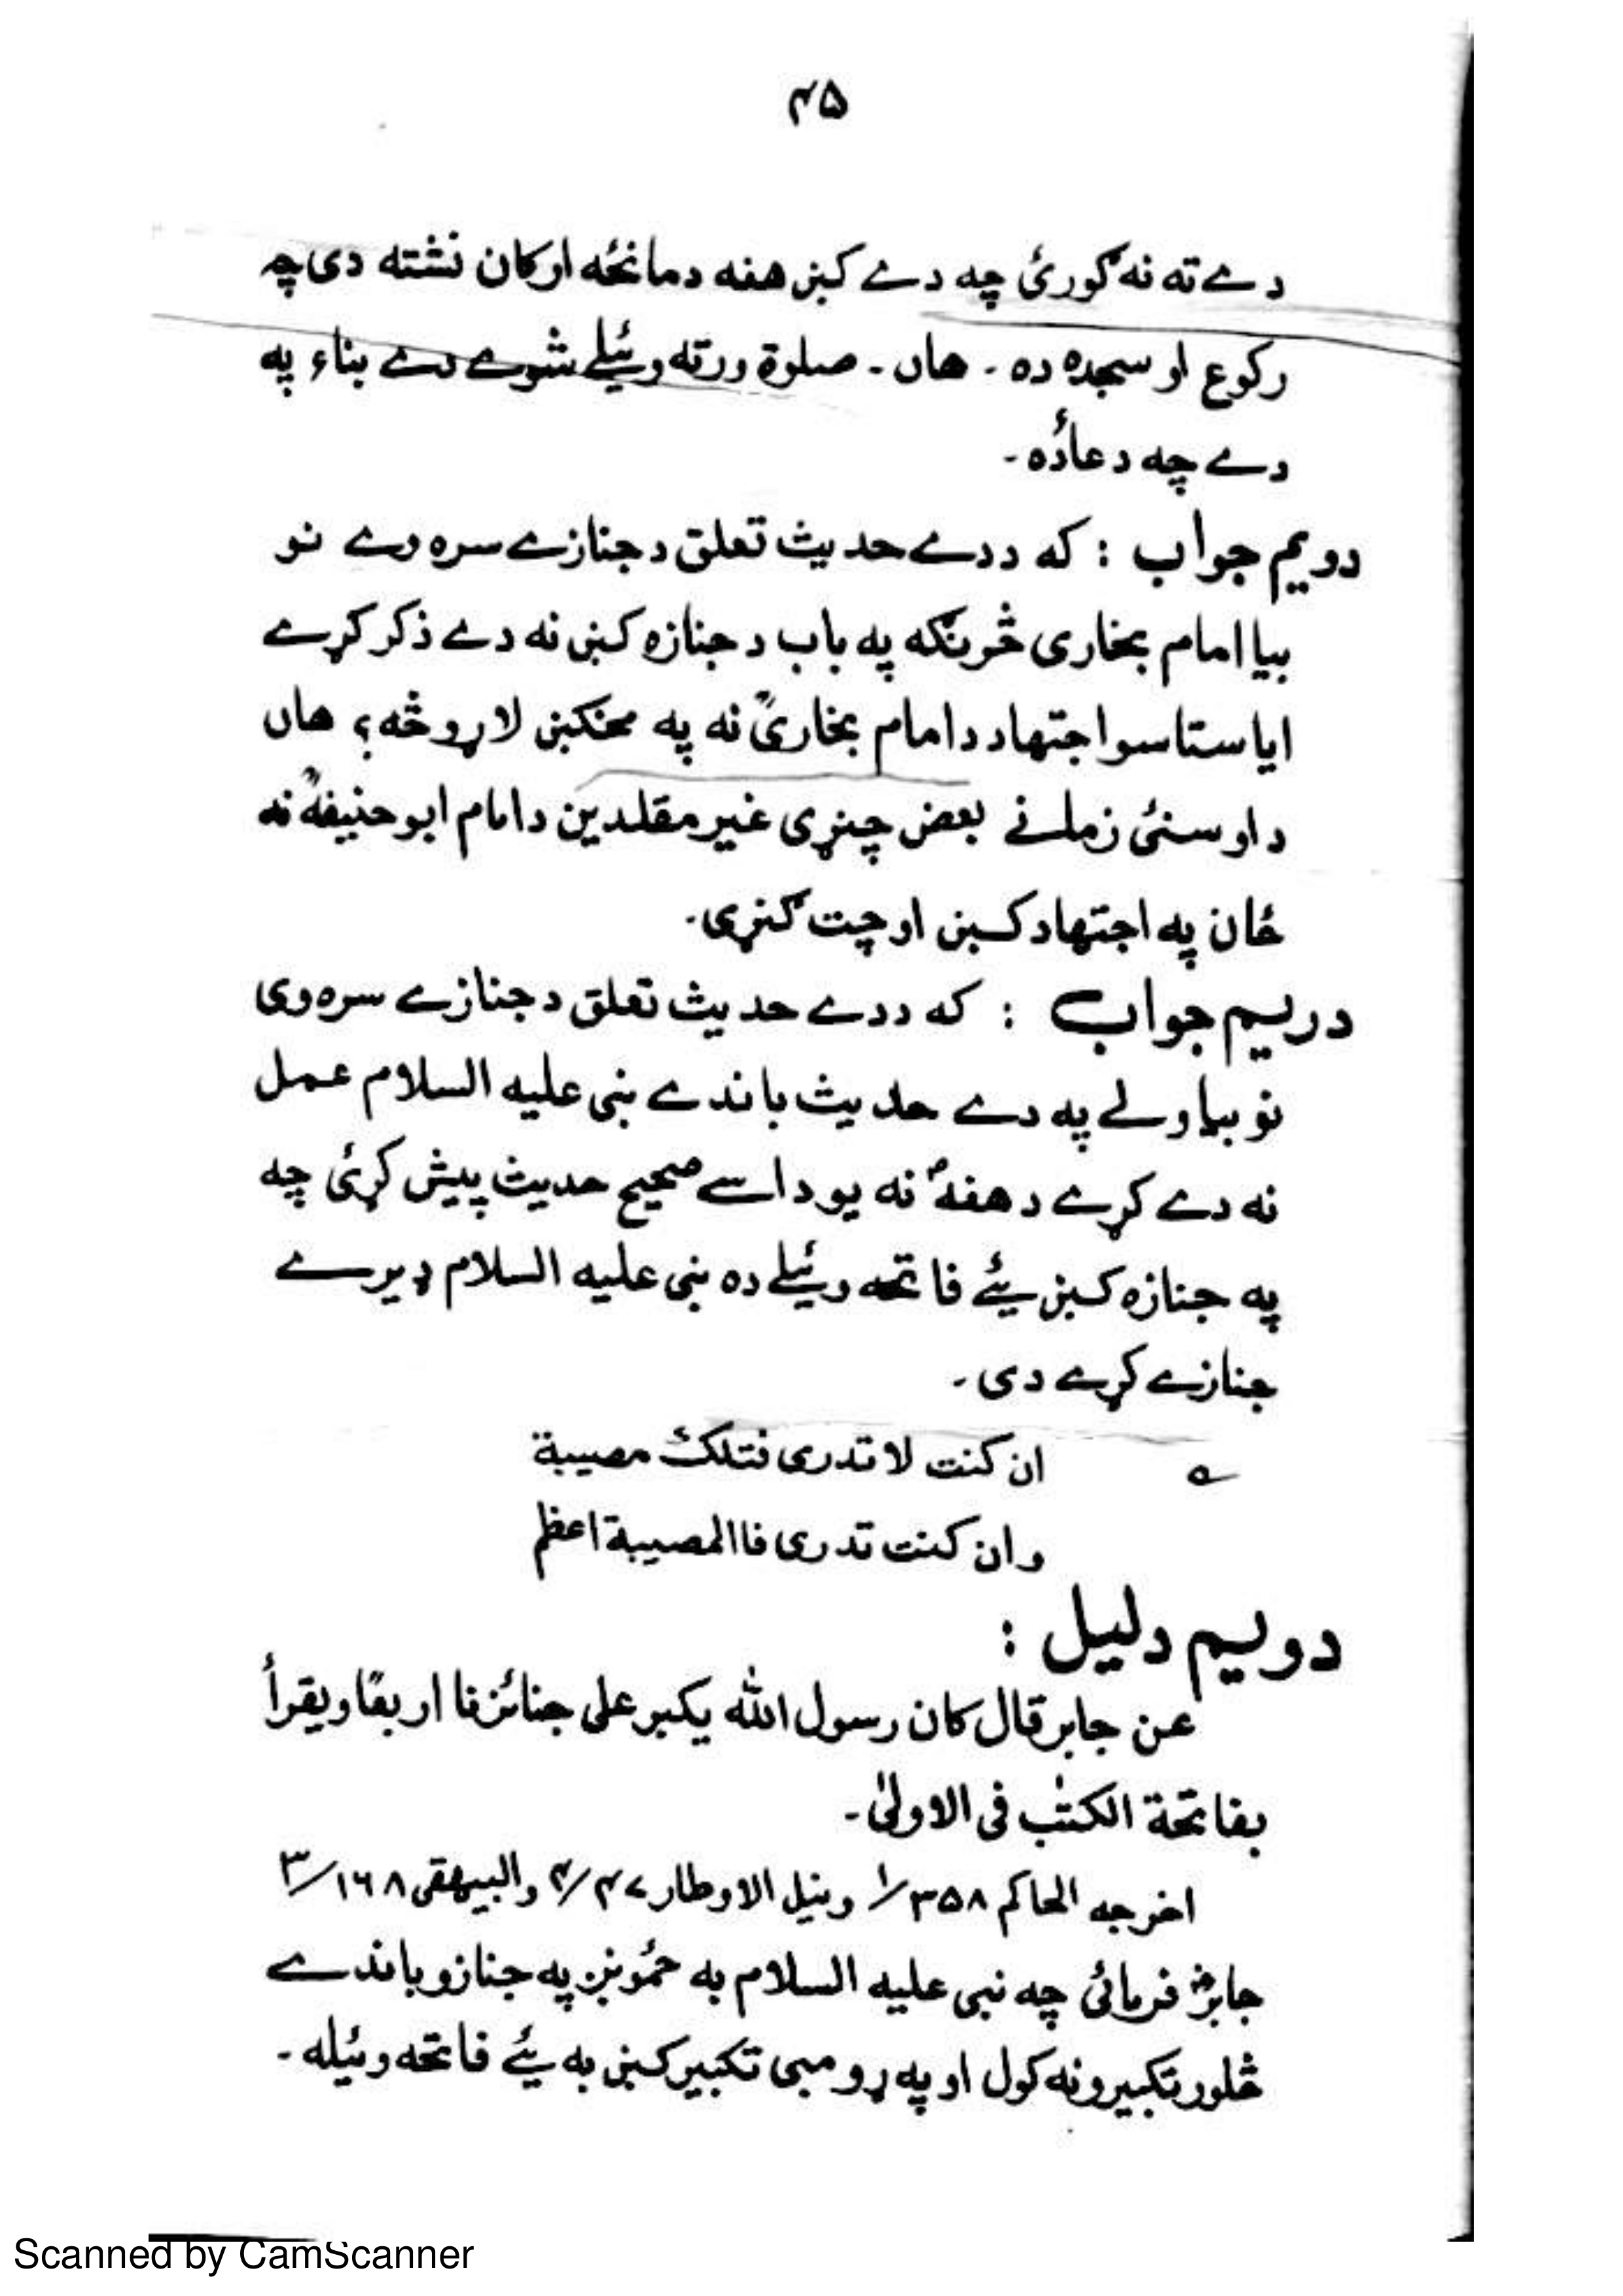 ۴۵
دے ته نه گورئ چه دے کښ هغه دمانځه ارکان نشته دی چه
رکوع او سجده ده ۔ هاں ۔ صلوة ورته وئیلے شوے دے بناء په
دے چه دعاءده ۔
دویم جواب : که ددے حدیث تعلق د جنازے سره وے نو
بیا امام بخاری څرنګه په باب د جنازه کښ نه دے ذکر کړے
ایا ستاسو اجتهاد د امام بخاریؒ نه په مخکښ لاړو څه؟ هاں
د اوسنئ زمانے بعض چنړی غیر مقلدین د امام ابو حنیفهؒ نه
ځان په اجتهاد کښ اوچت ګنړی۔
دریم جواب : که ددے حدیث تعلق د جنازے سره وی
نو بیا ولے په دے حدیث باندے نبی علیه السلام عمل
نه دے کړے د هغهؐ نه یو داسے صحیح حدیث پیش کړئ چه
په جنازه کښ یئے فاتحه وئیلے ده نبی علیه السلام ډیرے
جنازے کړے دی ۔
ان کنت لا تدری فتلک مصیبة
وان کنت تدری فاالمصیبة اعظم
دویم دلیل :
عن جابر قال کان رسول الله یکبر علی جنائزنا اربعًا ویقرأ
بفاتحة الکتٰب فی الاولیٰ ۔
اخرجه الحاکم ۳۵۸/۱ ونیل الاوطار ۴۷/۴ والبیهقی ۱۶۸/۳
جابرؓ فرمائی چه نبی علیه السلام به ځمُونږ په جنازو باندے
څلور تکبیرونه کول او په ړومبی تکبیر کښ به یئے فاتحه وئیله ۔
Scanned by CamScanner